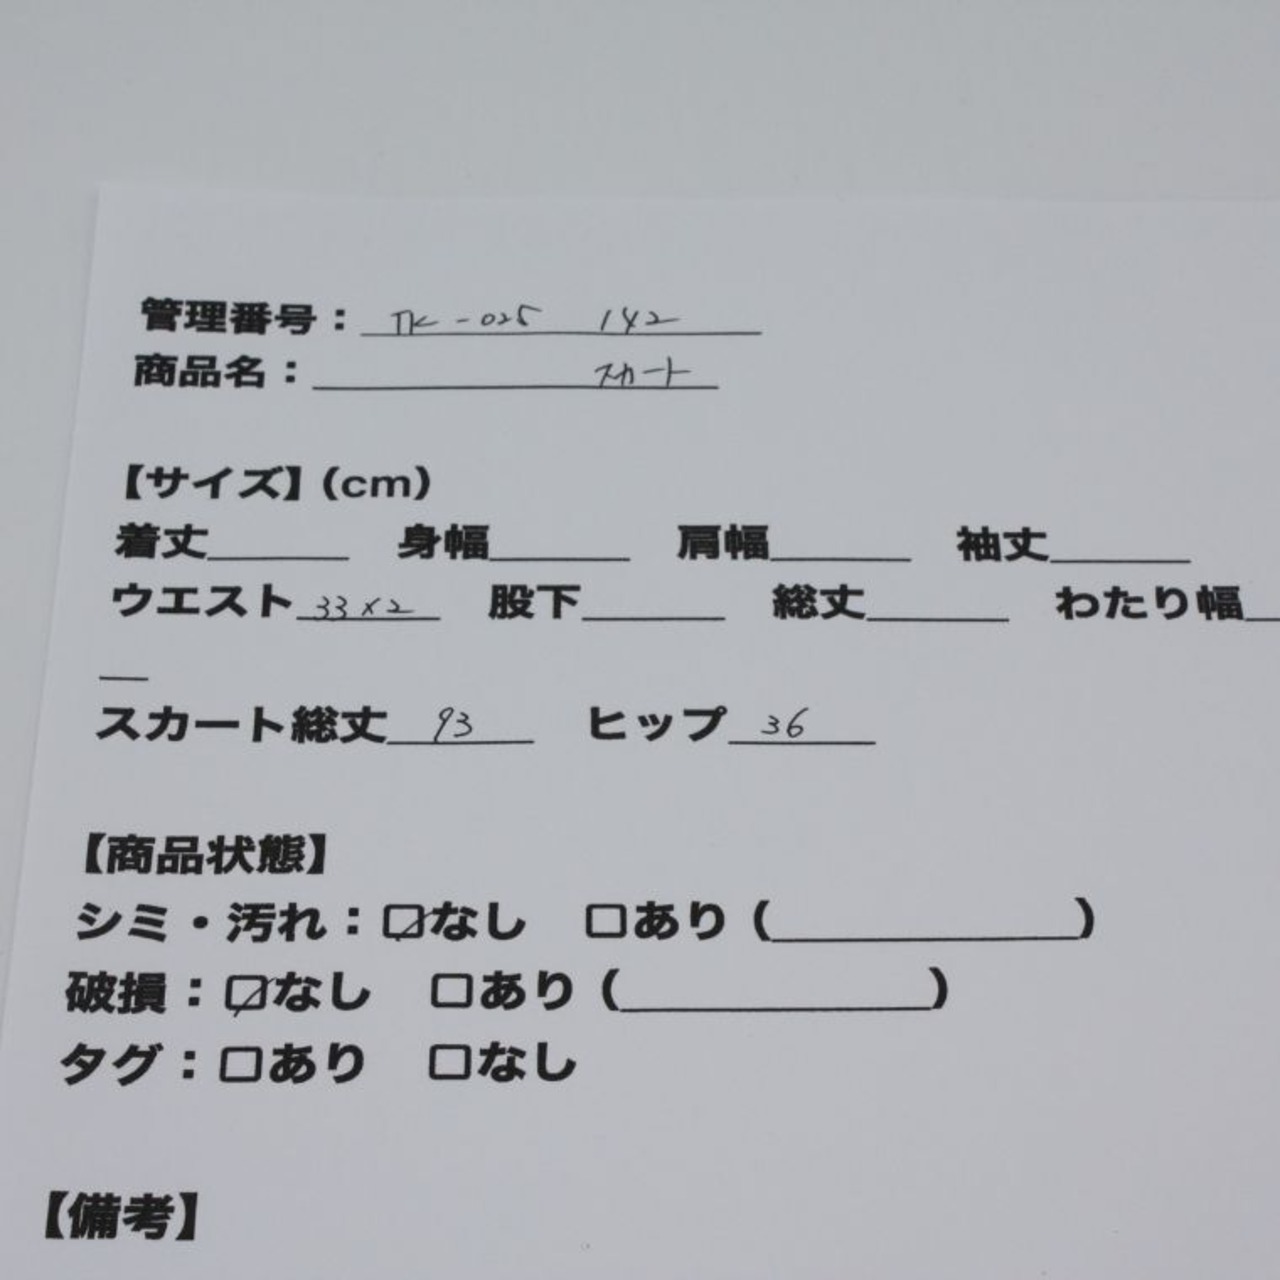 管理番号： TK-025 142
商品名： スカート
【サイズ】（cm）
着丈______ 身幅______ 肩幅______ 袖丈______
ウエスト 33×2 股下______ 総丈______ わたり幅__
__
スカート総丈 93 ヒップ 36
【商品状態】
シミ・汚れ：☑なし □あり（______________）
破損：☑なし □あり（______________）
タグ：□あり □なし
【備考】